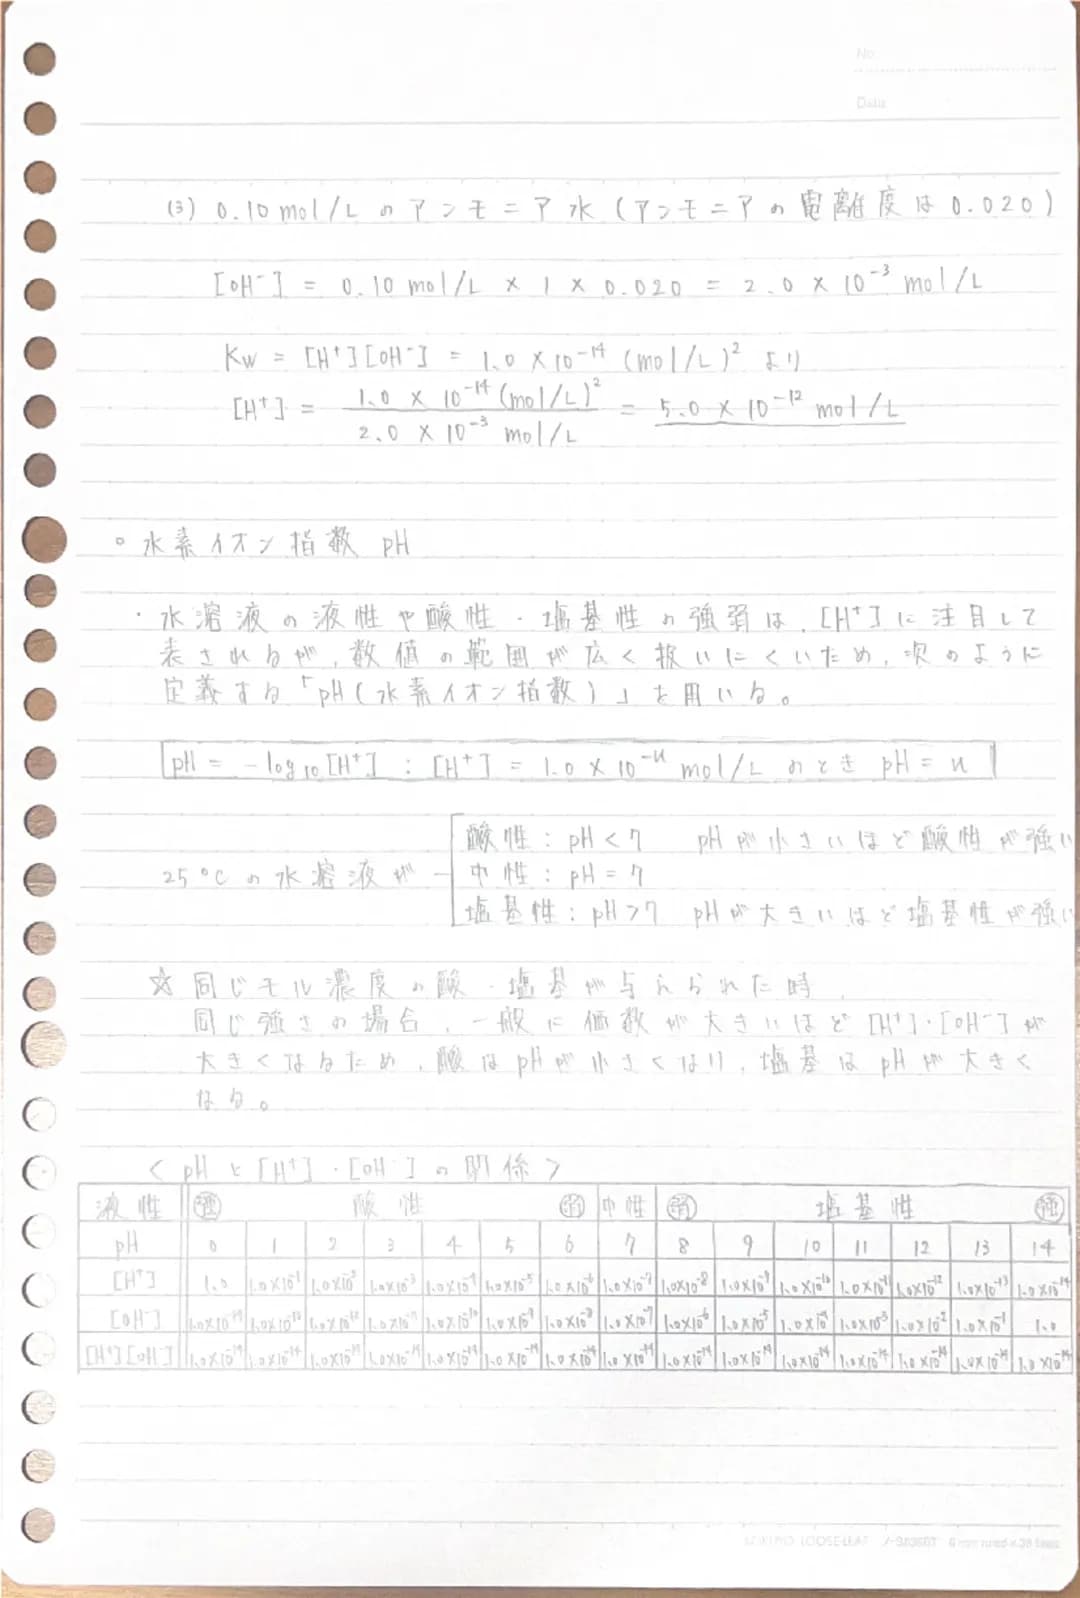 No.
Date
(3) 0.10 mol/L のアンモニア水 (アンモニアの電離度は 0.020)
[OH⁻] = 0.10 mol/L × 1 × 0.020 = 2.0 × 10⁻³ mol/L
Kw = [H⁺][OH⁻] = 1.0 × 10⁻¹⁴ (mol/L)² より
[H⁺] = 1.0 × 10⁻¹⁴ (mol/L)² / 2.0 × 10⁻³ mol/L = 5.0 × 10⁻¹² mol/L
○ 水素イオン指数 pH
・水溶液の液性や酸性・塩基性の強弱は、[H⁺]に注目して
表されるが、数値の範囲が広く扱いにくいため、次のように
定義する「pH(水素イオン指数)」を用いる。
pH = -log₁₀[H⁺] : [H⁺] = 1.0 × 10⁻ⁿ mol/L のとき pH = n
酸性: pH<7 pHが小さいほど酸性が強い
25℃の水溶液が 中性: pH=7
塩基性: pH>7 pHが大きいほど塩基性が強い
☆ 同じモル濃度の酸・塩基が与えられた時、
同じ強さの場合、一般に価数が大きいほど [H⁺]・[OH⁻]が
大きくなるため、酸はpHが小さくなり、塩基はpHが大きく
なる。
<pHと[H⁺]・[OH⁻]の関係>
液性 強 酸性 弱 中性 弱 塩基性 強
pH 0 1 2 3 4 5 6 7 8 9 10 11 12 13 14
[H⁺] 1.0 1.0×10⁻¹ 1.0×10⁻² 1.0×10⁻³ 1.0×10⁻⁴ 1.0×10⁻⁵ 1.0×10⁻⁶ 1.0×10⁻⁷ 1.0×10⁻⁸ 1.0×10⁻⁹ 1.0×10⁻¹⁰ 1.0×10⁻¹¹ 1.0×10⁻¹² 1.0×10⁻¹³ 1.0×10⁻¹⁴
[OH⁻] 1.0×10⁻¹⁴ 1.0×10⁻¹³ 1.0×10⁻¹² 1.0×10⁻¹¹ 1.0×10⁻¹⁰ 1.0×10⁻⁹ 1.0×10⁻⁸ 1.0×10⁻⁷ 1.0×10⁻⁶ 1.0×10⁻⁵ 1.0×10⁻⁴ 1.0×10⁻³ 1.0×10⁻² 1.0×10⁻¹ 1.0
[H⁺][OH⁻] 1.0×10⁻¹⁴ 1.0×10⁻¹⁴ 1.0×10⁻¹⁴ 1.0×10⁻¹⁴ 1.0×10⁻¹⁴ 1.0×10⁻¹⁴ 1.0×10⁻¹⁴ 1.0×10⁻¹⁴ 1.0×10⁻¹⁴ 1.0×10⁻¹⁴ 1.0×10⁻¹⁴ 1.0×10⁻¹⁴ 1.0×10⁻¹⁴ 1.0×10⁻¹⁴ 1.0×10⁻¹⁴
LOOSE-LEAF 6 mm ruled